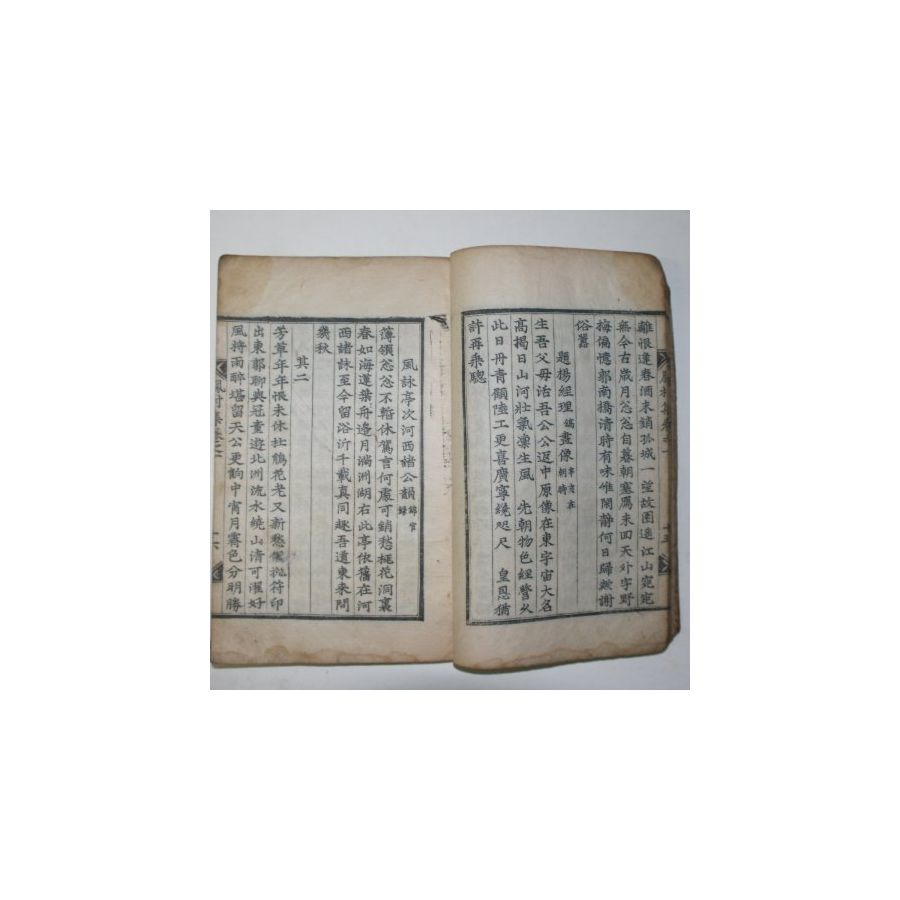 離恨逢春酒未銷孤城一望故園遥江山宛宛
無今古歲月忩忩自暮朝塞鴈未回天外字野
梅偏憶郭南橋清時有味惟閑静何日歸歟謝
俗囂
題楊經理鎬畫像
生吾父母活吾公公返中原像在東宇宙大名
高揭日山河壯氣凜生風 先朝物色經營久
此日丹青顧陸工更喜廣寧繞咫尺 皇恩猶
許再乘驄
風詠亭次河西諸公韻 錦官錄
簿領忩忩不暫休駕言何處可銷愁桃花洞裏
春如海蓮葉舟邊月滿洲湖右此亭依舊在河
西諸詠至今留浴沂千載真同趣吾道東来問
幾秋
其二
芳草年年恨未休杜鵑花老又新愁
出東郭聊與冠童遊北洲流水繞山清可濯好
風將雨醉堪留天公更餉中宵月霽色分明勝